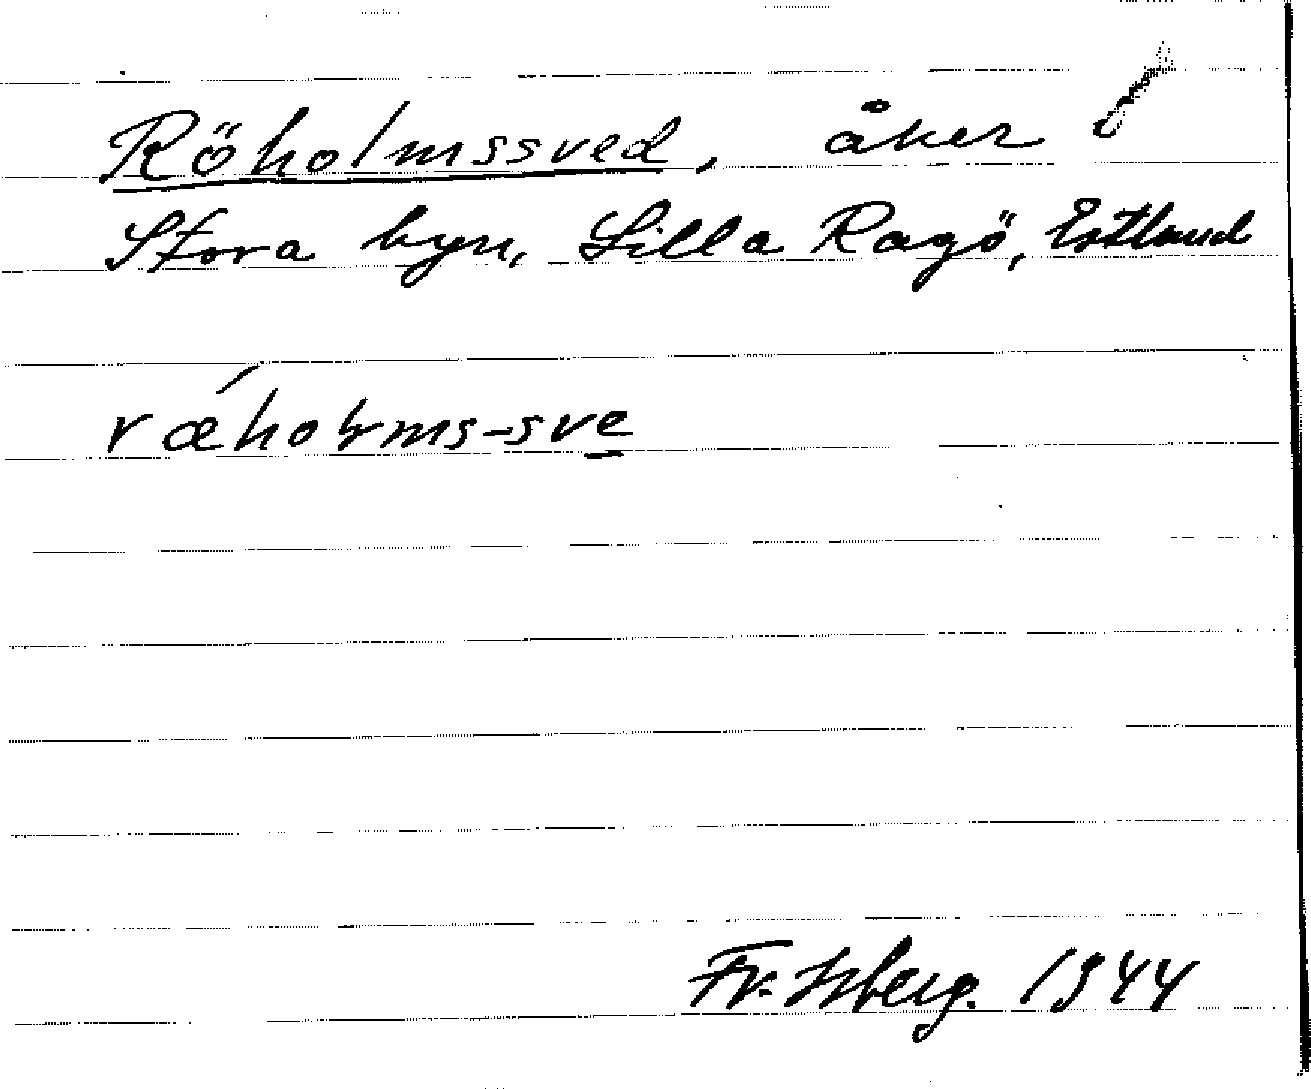 Röholmssved, åker
Stora byn, Lilla Ragö, Estland
rǽhoɫms-sve̱
Fr. Isberg. 1944